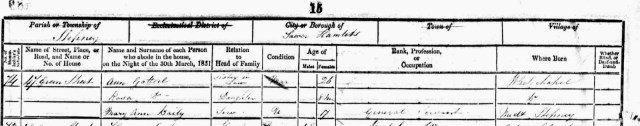 15
Parish or Township of Ecclesiastical District of City or Borough of Town of Village of
Stepney Tower Hamlets
Name of Street, Place, or Road, and Name or No. of House
Name and Surname of each Person who abode in the house, on the Night of the 30th March, 1851
Relation to Head of Family
Condition
Age of
Males Females
Rank, Profession, or Occupation
Where Born
Whether Blind, or Deaf-and-Dumb
74 47 Green Street Ann Sister in Law 26 Whitechapel
Do Daughter Do
Mary Ann Serv U 17 General Servant Middx Stepney